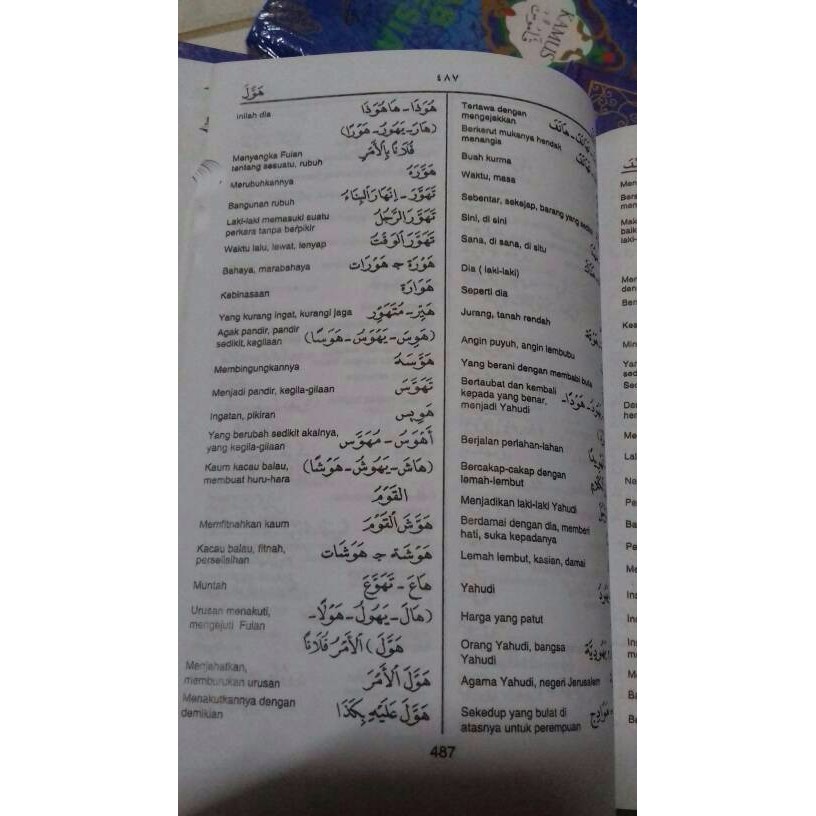 KAMUS
٤٨٧
هَوَّلَ
Tertawa dengan
mengejekkan
Berkerut mukanya hendak
menangis
Buah kurma
Waktu, masa
Sebentar, sekejap, barang yang
Sini, di sini
Sana, di sana, di situ
Dia ( laki-laki)
Seperti dia
Jurang, tanah rendah
Angin puyuh, angin lembubu
Yang berani dengan membabi buta
Bertaubat dan kembali
kepada yang benar, هَوْدًا-
menjadi Yahudi
Berjalan perlahan-lahan
Bercakap-cakap dengan
lemah-lembut
Menjadikan laki-laki Yahudi
Berdamai dengan dia, memberi
hati, suka kepadanya
Lemah lembut, kasian, damai
Yahudi
Harga yang patut
Orang Yahudi, bangsa
Yahudi
Agama Yahudi, negeri Jerusalem
Sekedup yang bulat di هَوَادِج
atasnya untuk perempuan
Inilah dia هٰوَذَا - هَاهُوَذَا
(هَارَ - يَهُوْرُ - هَوْرًا)
Menyangka Fulan فُلَانًا بِالْأَمْرِ
tentang sesuatu, rubuh
Merubuhkannya هَوَّرَهُ
Bangunan rubuh تَهَوَّرَ - اِنْهَارَ الْبِنَاءُ
Laki-laki memasuki suatu تَهَوَّرَ الرَّجُلُ
perkara tanpa berpikir
Waktu lalu, lewat, lenyap تَهَوَّرَ الْوَقْتُ
Bahaya, marabahaya هَوْرَة ج هَوْرَات
Kebinasaan هَوَارَة
Yang kurang ingat, kurangi jaga هَيِّر - مُتَهَوِّر
Agak pandir, pandir (هَوِسَ - يَهْوَسُ - هَوَسًا)
sedikit, kegilaan
Membingungkannya هَوَّسَهُ
Menjadi pandir, kegila-gilaan تَهَوَّسَ
Ingatan, pikiran هَوِيس
Yang berubah sedikit akalnya, أَهْوَس - مُهَوَّس
yang kegila-gilaan
Kaum kacau balau, (هَاشَ - يَهُوْشُ - هَوْشًا)
membuat huru-hara
القَوْمُ
Memfitnahkan kaum هَوَّشَ الْقَوْمَ
Kacau balau, fitnah, هَوْشَة ج هَوْشَات
perselisihan
Muntah هَاعَ - تَهَوَّعَ
Urusan menakuti, (هَالَ - يَهُوْلُ - هَوْلًا -
mengejuti Fulan
هَوَّلَ) الْأَمْرُ فُلَانًا
Menjahatkan, هَوَّلَ الْأَمْرَ
memburukan urusan
Menakutkannya dengan هَوَّلَ عَلَيْهِ بِكَذَا
demikian
487